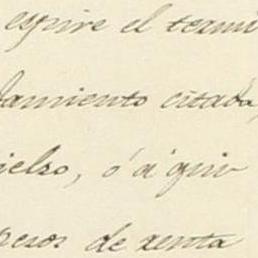 espire el termi
damiento citado,
ielso, ó á quie
pesos de renta